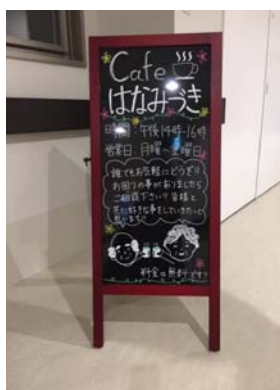 Cafe
はなみづき
時間：午後14時-16時
営業日：月曜〜金曜日
誰でもお気軽にどうぞ!!
お困りの事がありましたら
ご相談下さい!! 皆様と
共に好きな事をしていきたいと
思います♪
料金は無料です!